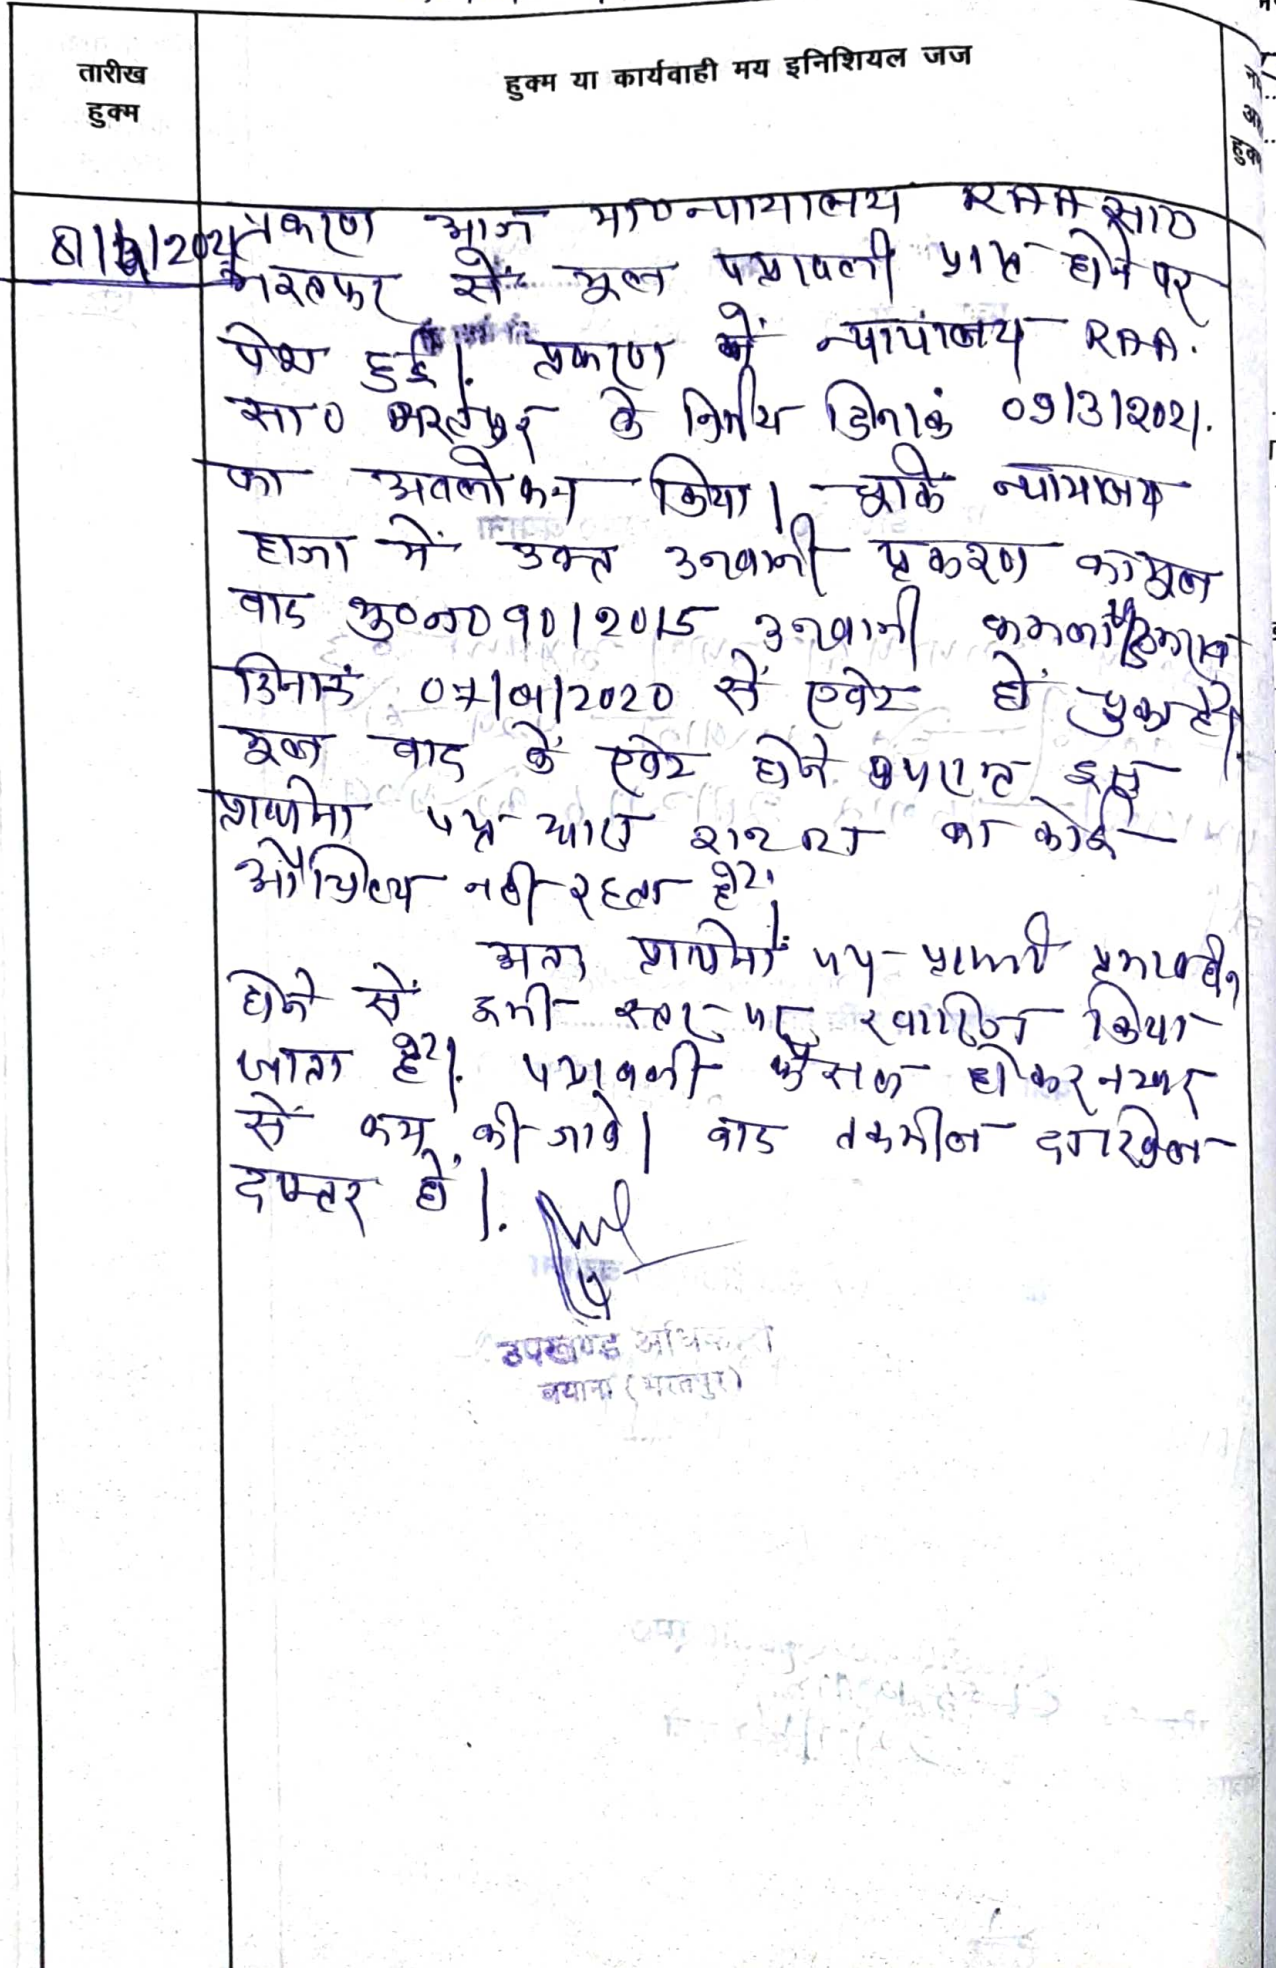 तारीख
हुक्म
हुक्म या कार्यवाही मय इनिशियल जज
हुक्
प्रकरण आज मा० न्यायालय RAA सा०
भरतपुर से मूल पत्रावली प्राप्त होने पर
पेश हुई। प्रकरण में न्यायालय RAA.
सा० भरतपुर के निर्णय दिनांक 09/3/2021.
का अवलोकन किया। चूंकि न्यायालय
हाजा में उक्त उनवानी प्रकरण का मूल
वाद मु०न० 90/2015 उनवानी
दिनांक 07/01/2020 से एवेट हो चुका है।
मूल वाद के एवेट होने उपरान्त इस
प्रार्थना पत्र का कोई
औचित्य नही रहता है।
अतः प्रार्थना पत्र प्रार्थी प्रभावहीन
होने से इसी स्तर पर खारिज किया
जाता है। पत्रावली फैसल होकर नम्बर
से कम की जावे। बाद तकमील दाखिल
दफ्तर हो।.
उपखण्ड अधिकारी
बयाना (भरतपुर)